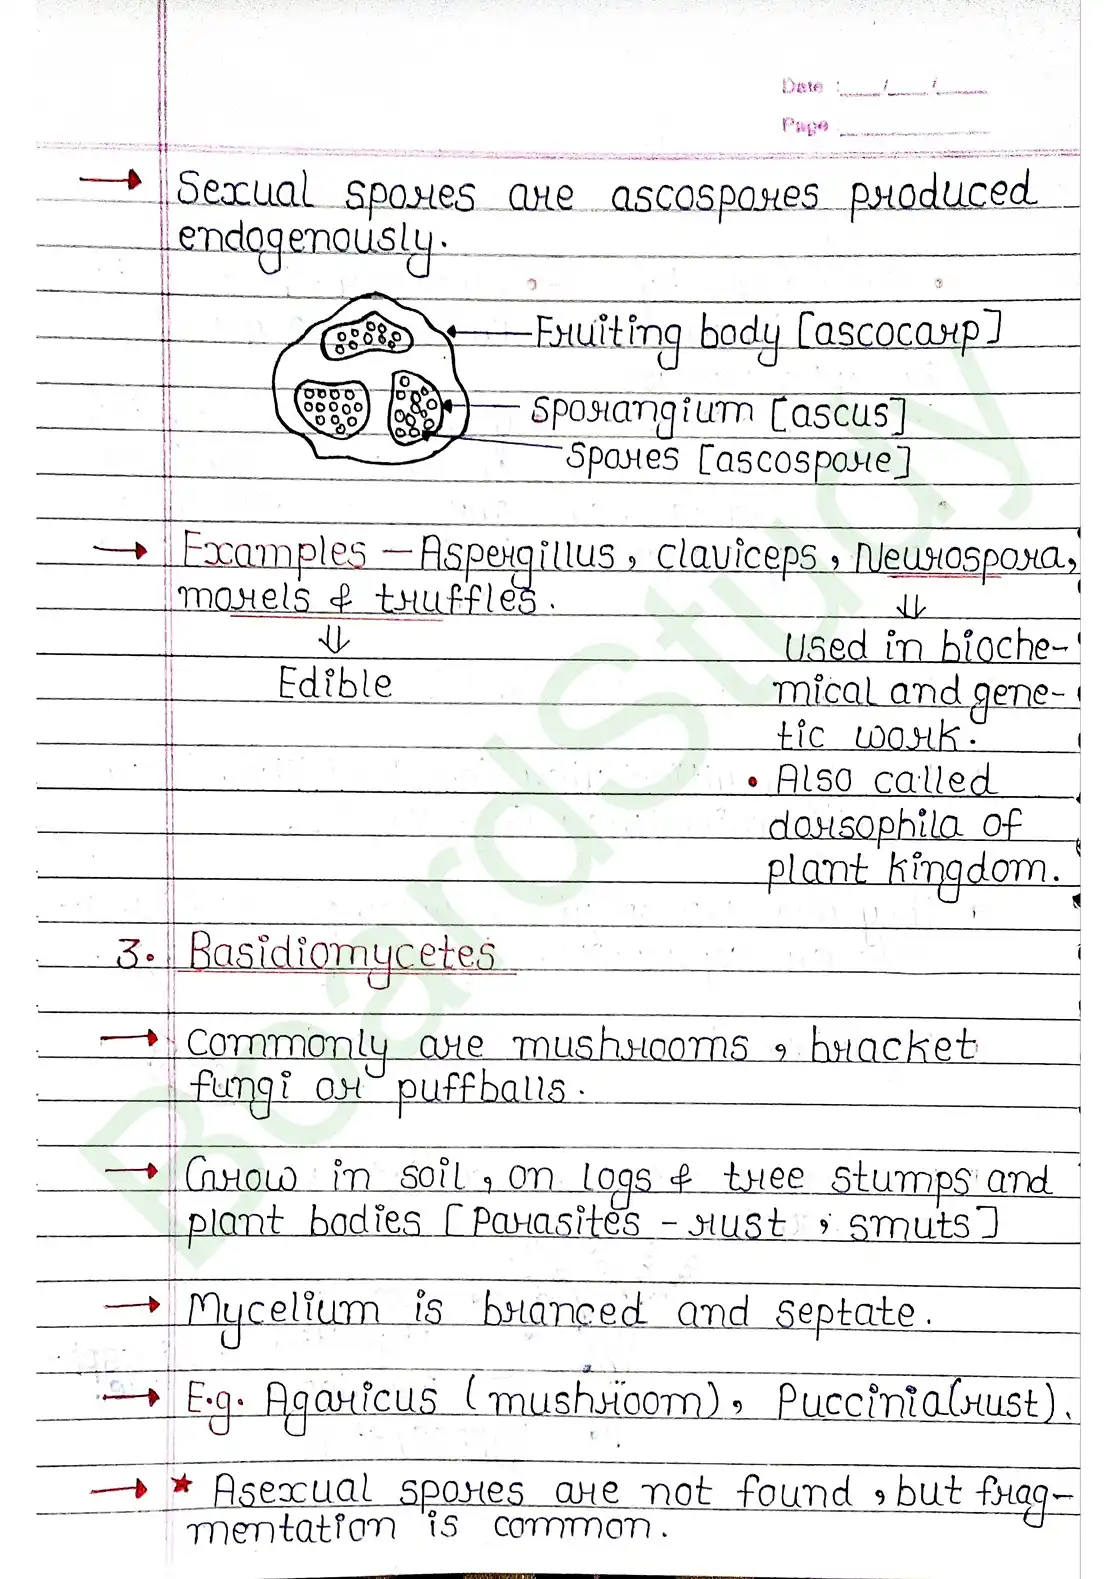 Date :___/___/___
Page ___
→ Sexual spores are ascospores produced
endogenously.
Fruiting body [ascocarp]
Sporangium [ascus]
Spores [ascospore]
→ Examples – Aspergillus, claviceps, Neurospora,
morels & truffles.
⇓ ⇓
Edible
used in bioche-
mical and gene-
tic work.
• Also called
dorsophila of
plant kingdom.
3. Basidiomycetes
→ Commonly are mushrooms, bracket
fungi or puffballs.
→ Grow in soil, on logs & tree stumps and
plant bodies [Parasites - rust, smuts]
→ Mycelium is branced and septate.
→ E.g. Agaricus (mushroom), Puccinia(rust).
→ ★ Asexual spores are not found, but frag-
mentation is common.
BoardStudy